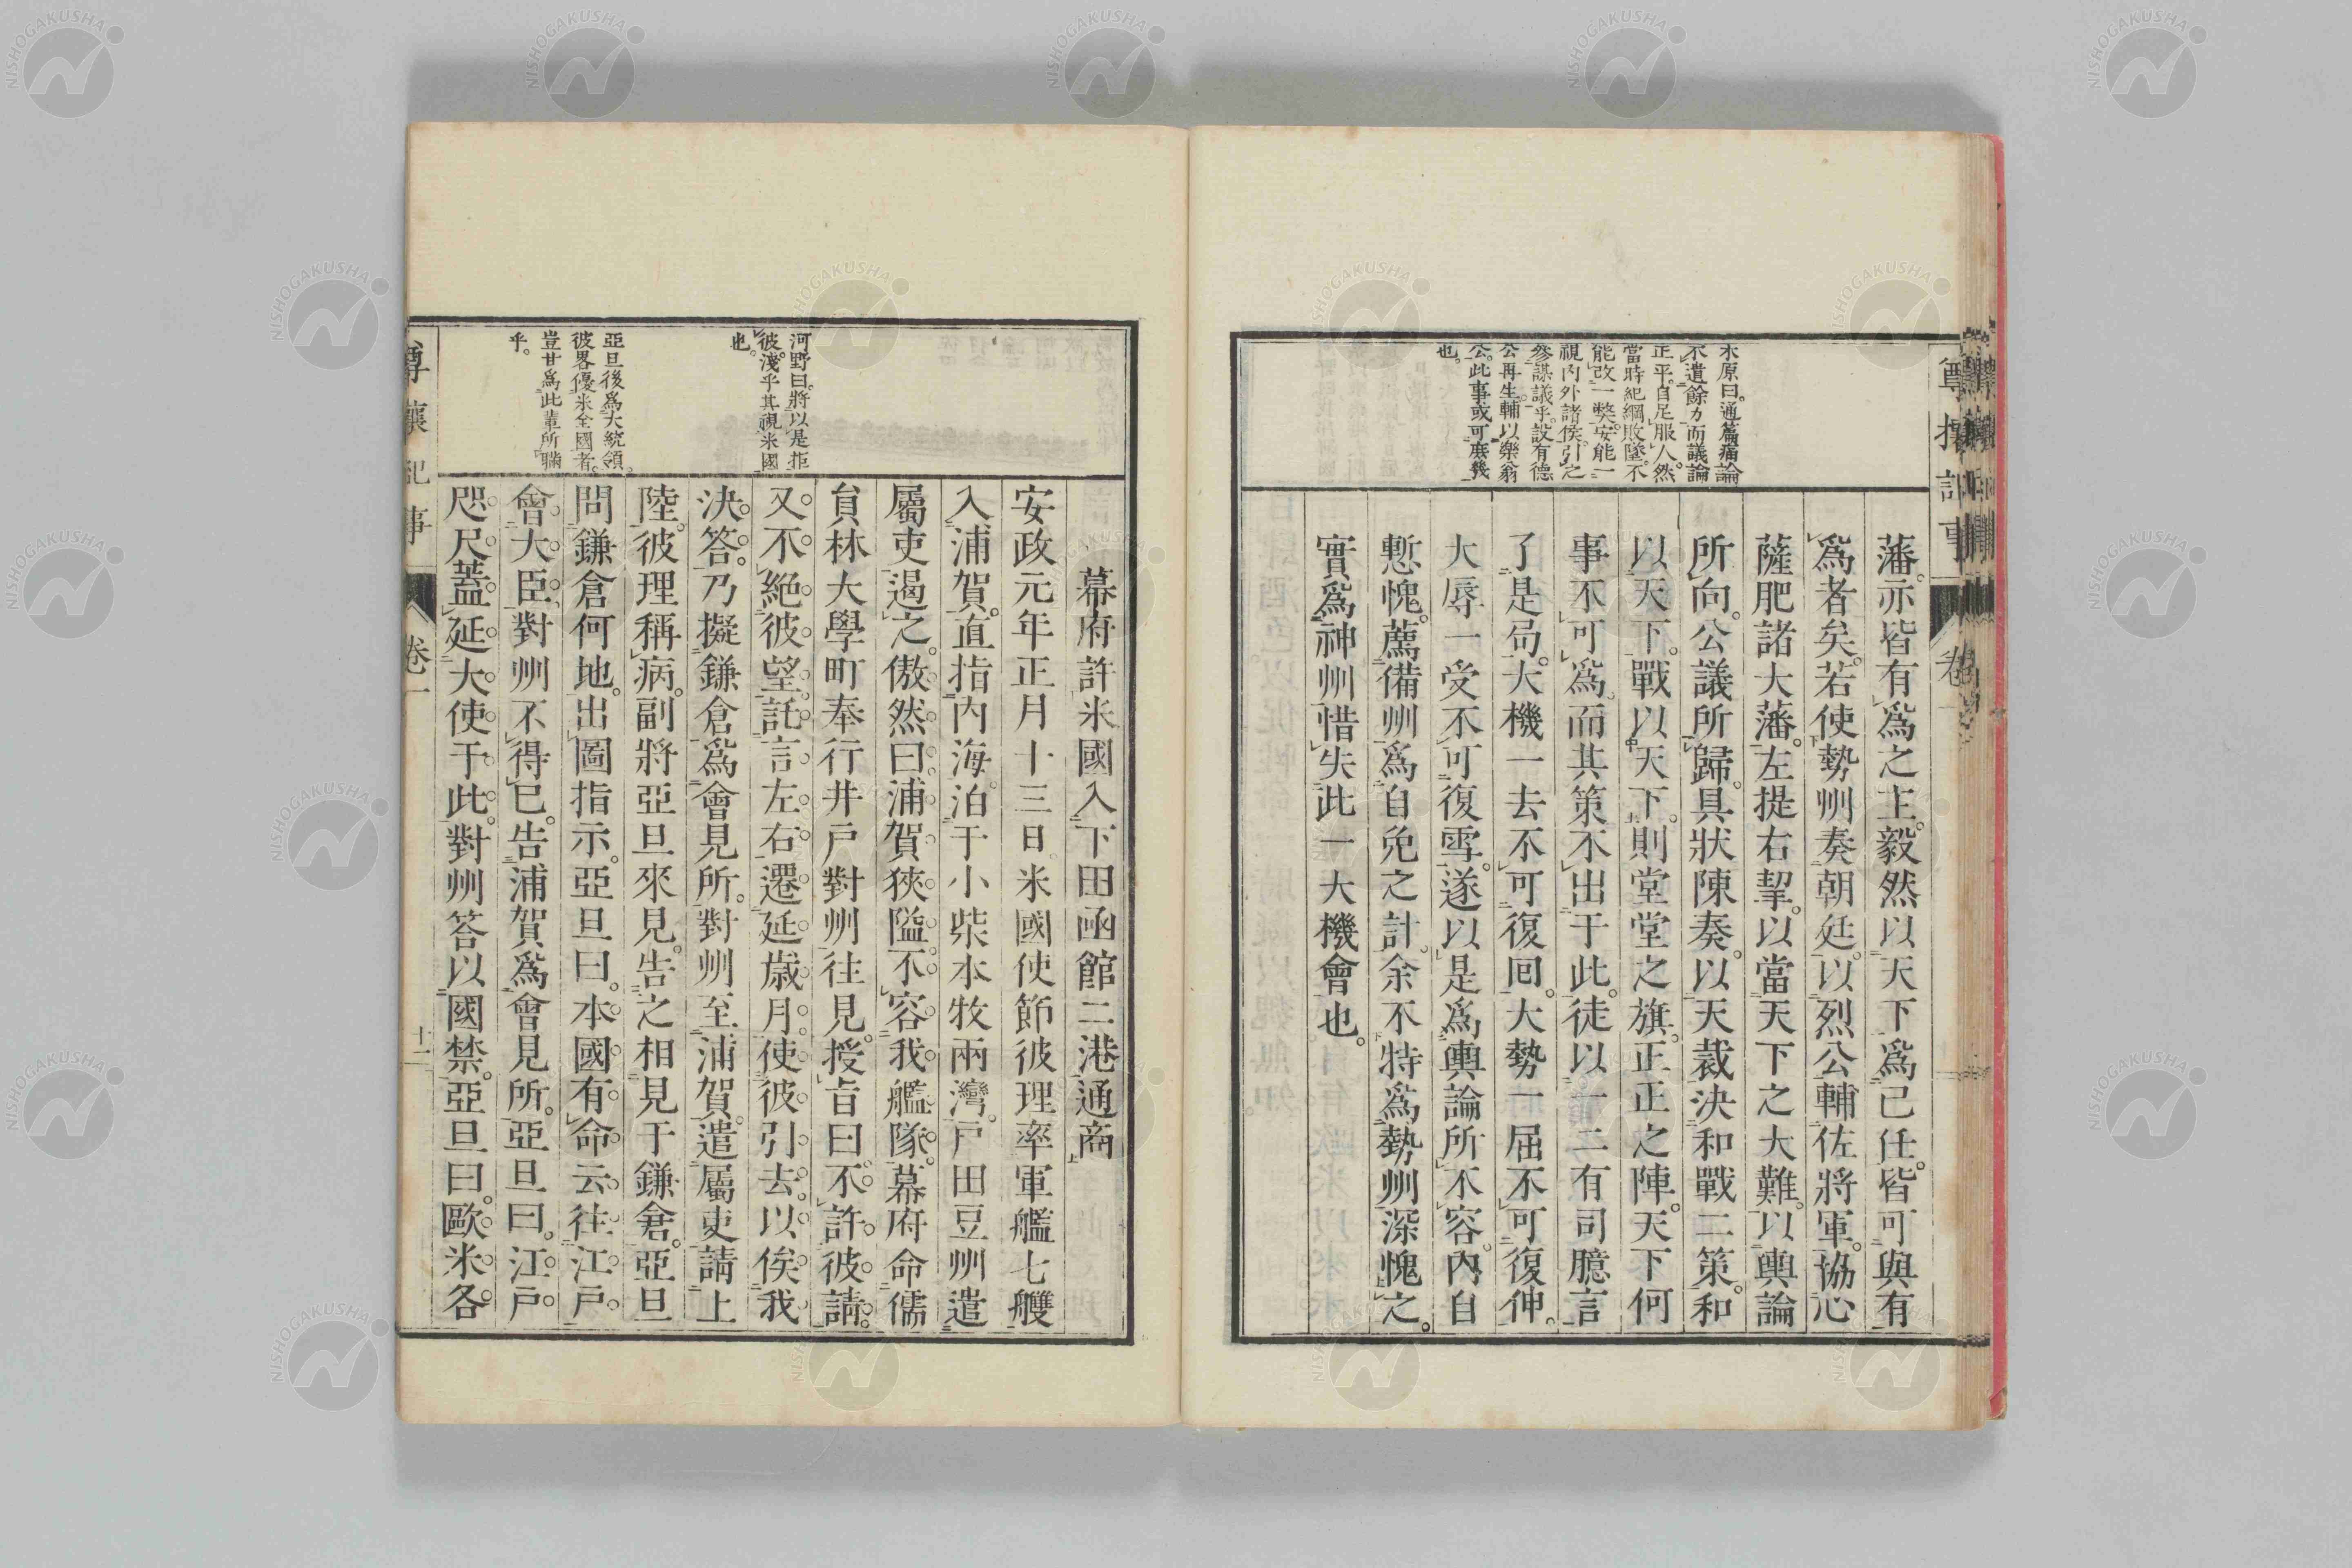 尊攘記事
卷一
木原曰。通篇痛論
不遺餘力而議論
正平。自足服人。然
當時紀綱敗墜。不
能改一弊。安能一
視内外諸侯。引之
參謀議乎。設有德
公再生。輔以樂翁
公。此事或可庶幾
也。
藩。亦皆有爲之主。毅然以天下爲己任。皆可與有
爲者矣。若使勢州奏朝廷。以烈公輔佐將軍。協心
薩肥諸大藩。左提右挈。以當天下之大難。以輿論
所向。公議所歸。具狀陳奏。以天裁決和戰二策。和
以天下。戰以天下。則堂堂之旗。正正之陣。天下何
事不可爲。而其策不出于此。徒以一二有司臆言
了是局。大機一去不可復回。大勢一屈不可復伸。
大辱一受不可復雪。遂以是爲輿論所不容。内自
慙愧。薦備州爲自免之計。余不特爲勢州深愧之。
實爲神州惜失此一大機會也。
河野曰。將以是拒
彼。淺乎其視米國
也。
亞旦後爲大統領。
彼畧優米全國者。
豈甘爲此輩所瞞
乎。
幕府許米國入下田函館二港通商
安政元年正月十三日米國使節彼理率軍艦七艘
入浦賀。直指内海。泊于小柴本牧兩灣。戸田豆州遣
屬吏遏之。傲然曰。浦賀狹隘。不容我艦隊。幕府命儒
員林大學町奉行井戸對州往見。授旨曰。不許彼請。
又不絶彼望。託言左右。遷延歳月。使彼引去。以俟我
決答。乃擬鎌倉爲會見所。對州至浦賀。遣屬吏請上
陸。彼理稱病。副將亞旦來見。告之相見于鎌倉。亞旦
問鎌倉何地。出圖指示。亞旦曰。本國有命云。往江戸。
會大臣。對州不得已。告浦賀爲會見所。亞旦曰。江戸
咫尺。蓋延大使于此。對州答以國禁。亞旦曰。歐米各
尊攘記事
卷一
十二